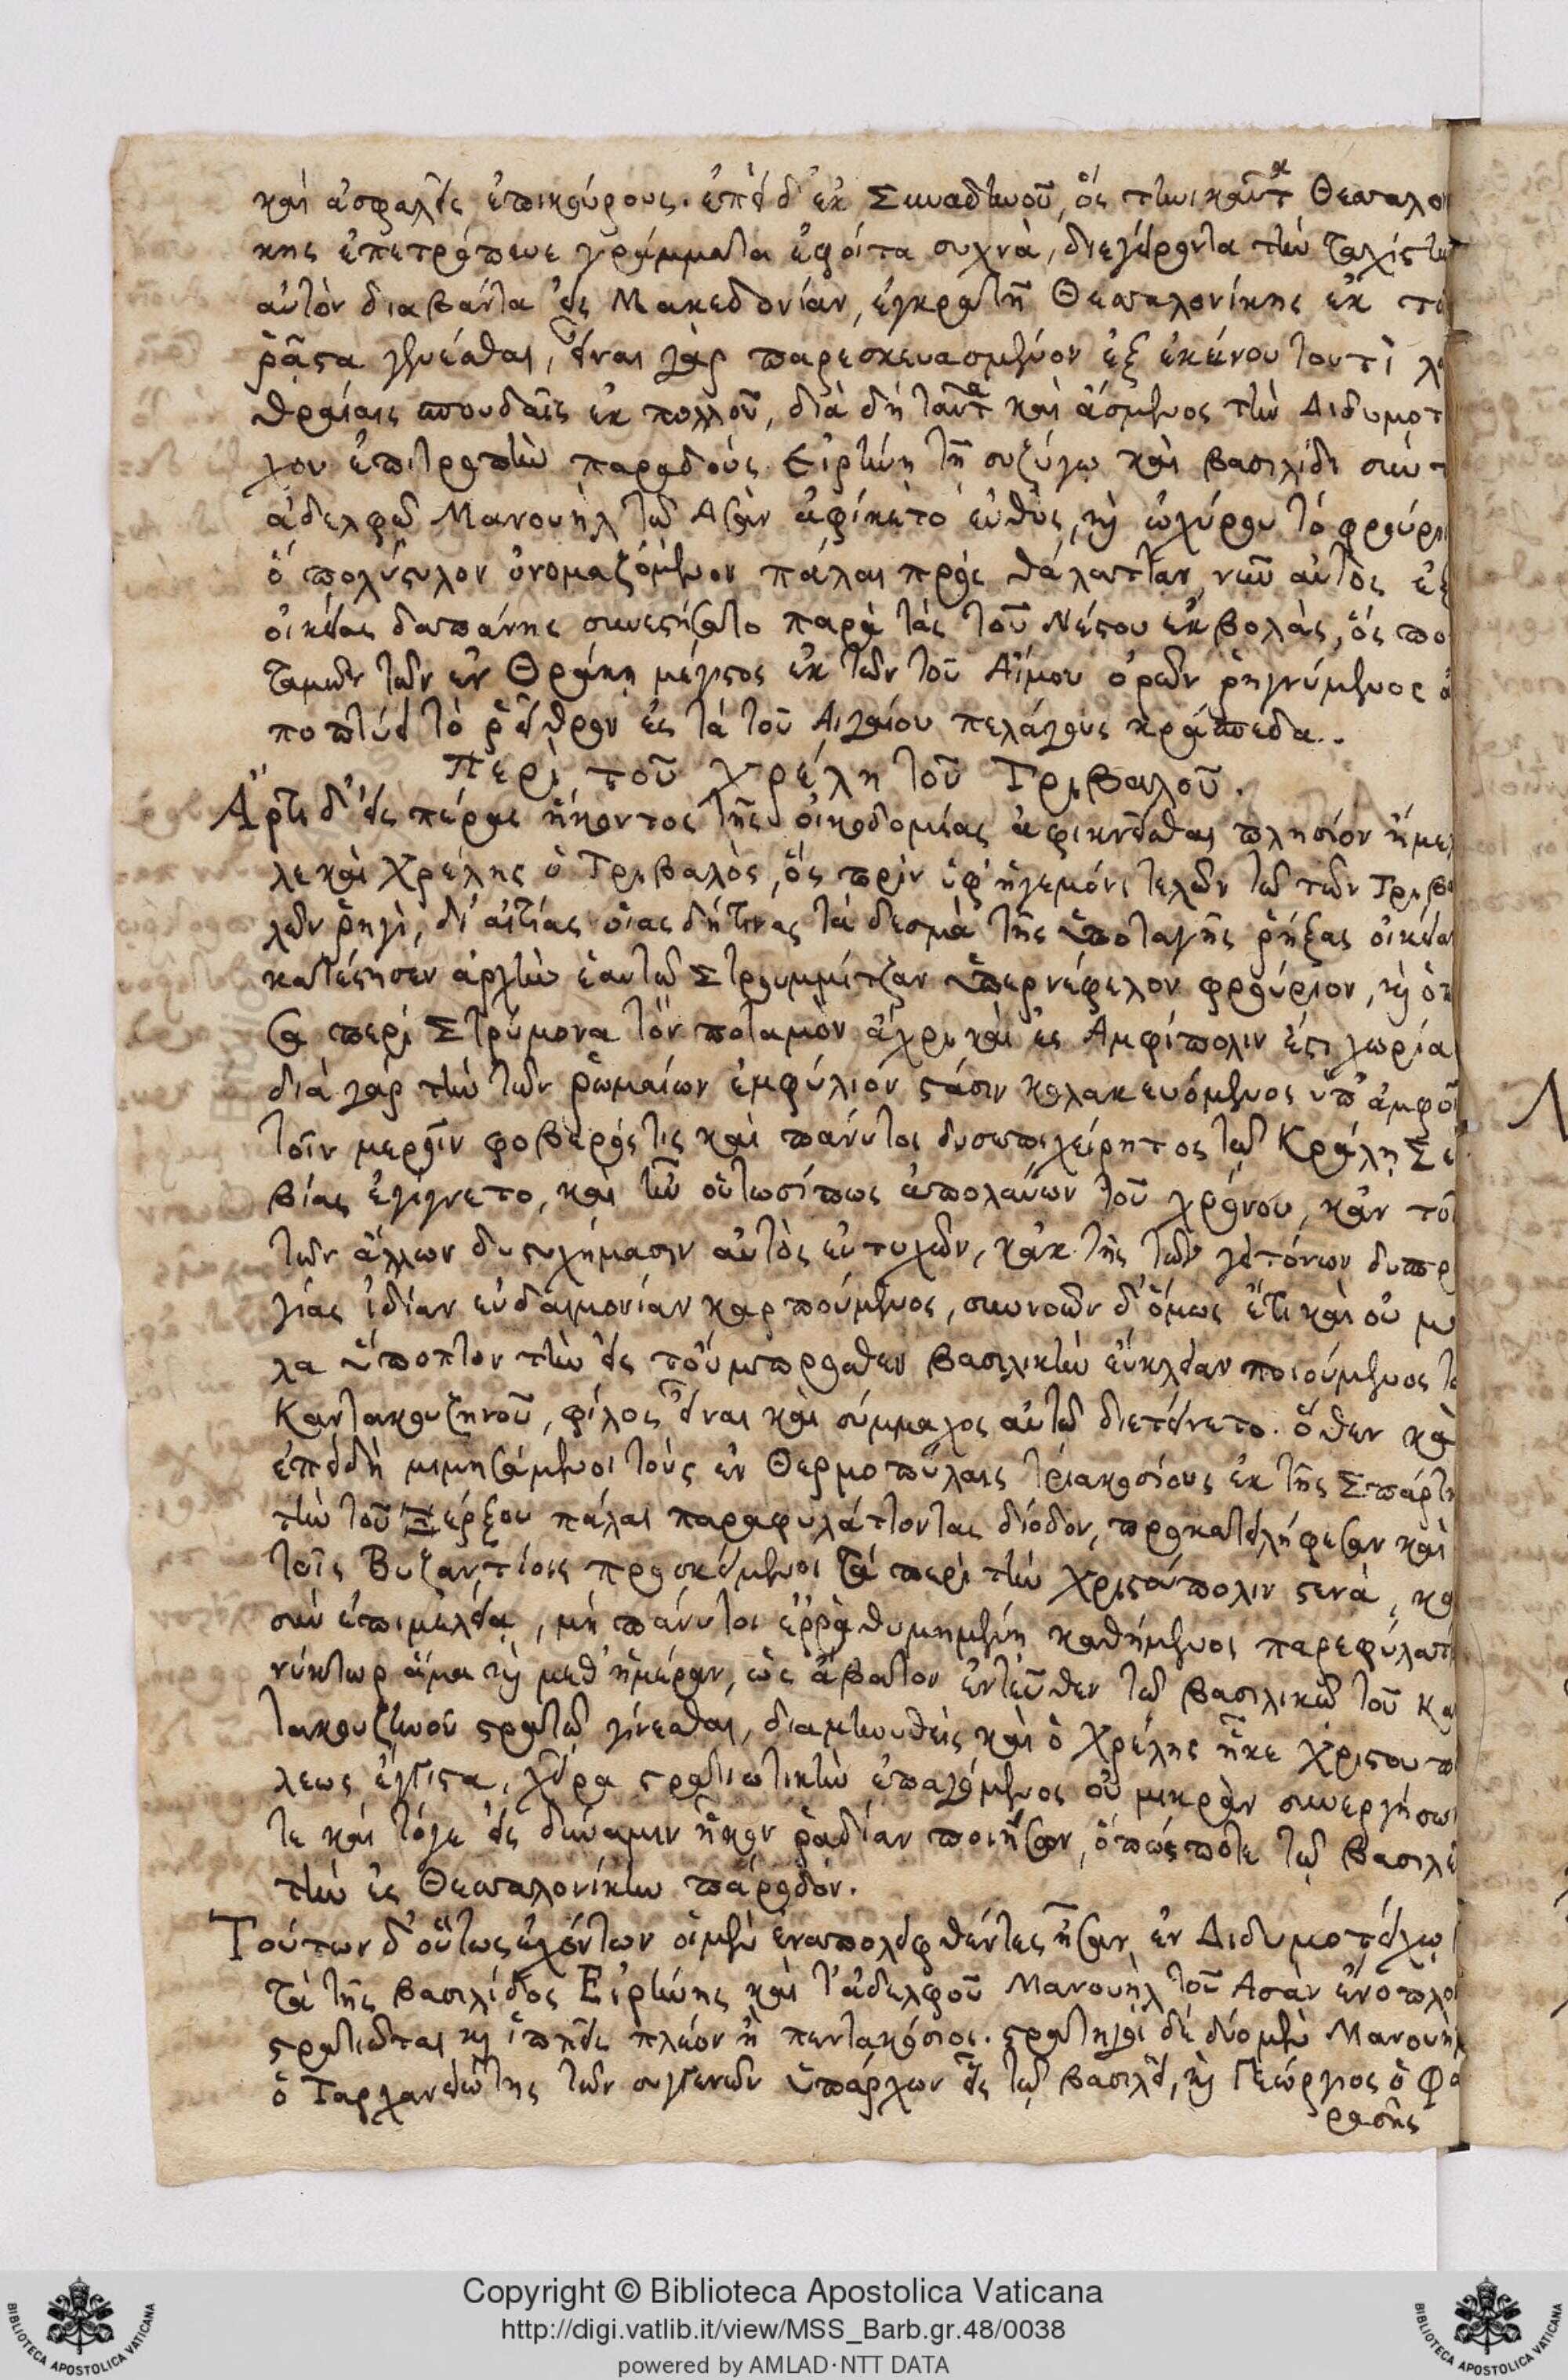 καὶ ἀσφαλεῖς ἐπικούρους. ἐπεὶ δ' ἐκ Συναδηνοῦ, ὃς τηνικαῦτα Θεσσαλο
κης ἐπετρόπευε γράμματα ἐφοίτα συχνὰ, διεγείροντα τὴν ταχίστην
αὐτὸν διαβάντα εἰς Μακεδονίαν, ἐγκρατῆ Θεσσαλονίκης ἐκ τοῦ
ῥᾷστα γενέσθαι, εἶναι γὰρ παρεσκευασμένον ἐξ ἐκείνου τουτὶ λα
θραίαις σπουδαῖς ἐκ πολλοῦ, διὰ δὴ ταῦτα καὶ ἄσμενος τὴν Διδυμοτ
χου ἐπιτροπὴν παραδοὺς Εἰρήνῃ τῇ συζύγῳ καὶ βασιλίδι σὺν τ
ἀδελφῷ Μανουὴλ τῷ Ασὰν ἀφίκετο εὐθὺς, καὶ ὠχύρου τὸ φρούρι
ὃ πολύστυλον ὀνομαζόμενον πάλαι πρὸς θάλατταν νῦν αὐτὸς ἐξ
οἰκείας δαπάνης συνεστήσατο παρὰ τὰς τοῦ Νέστου ἐκβολὰς, ὃς πο
ταμῶν τῶν ἐν Θράκῃ μέγιστος ἐκ τῶν τοῦ Αἵμου ὀρῶν ῥηγνύμενος ἀ
ποπτύει τὸ ῥεῖθρον ἐς τὰ τοῦ Αἰγαίου πελάγους κράσπεδα..
Περὶ τοῦ Χρέλη τοῦ Τριβαλοῦ.
Ἄρτι δ' εἰς πέρας ἥκοντος τῆς οἰκοδομίας ἀφικνεῖσθαι πλησίον ἤμελ
λε καὶ Χρέλης ὁ Τριβαλὸς, ὃς πρὶν ὑφ' ἡγεμόνι τελῶν τῷ τῶν Τριβα
λῶν ῥηγὶ, δι' αἰτίας οἵας δήτινας τὰ δεσμὰ τῆς ὑποταγῆς ῥήξας οἰκείαν
κατέστησεν ἀρχὴν ἑαυτῷ Στρουμμίτζαν ὑπερνέφελον φρούριον, καὶ ὁπ
σα περὶ Στρύμονα τὸν ποταμὸν ἄχρι καὶ ἐς Αμφίπολιν ἐστὶ χωρία
διὰ γὰρ τὴν τῶν ῥωμαίων ἐμφύλιον στάσιν κολακευόμενος ὑπ' ἀμφοῖ
τοῖν μεροῖν φοβερός τις καὶ πάνυτοι δυσεπιχείρητος τῷ Κράλῃ Σε
βίας ἐγίγνετο, καὶ ἦν οὑτωσίπως ἀπολαύων τοῦ χρόνου, κἂν τοῖ
τῶν ἄλλων δυστυχήμασιν αὐτὸς εὐτυχῶν, κἀκ τῆς τῶν γειτόνων δυσπρ
γίας ἰδίαν εὐδαιμονίαν καρπούμενος, συννοῶν δ' ὅμως ἔτι καὶ οὐ μά
λα ὕποπτον τὴν εἰς τοὔμπροσθεν βασιλικὴν εὔκλειαν ποιούμενος το
Κανλακουζηνοῦ, φίλος εἶναι καὶ σύμμαχος αὐτῷ διετείνετο. ὅθεν κα
ἐπειδὴ μιμησάμενοι τοὺς ἐν Θερμοπύλαις τριακοσίους ἐκ τῆς Σπάρτη
τὴν τοῦ Ξέρξου πάλαι παραφυλάττοντας δίοδον, προκατειλήφεσαν καὶ
τοῖς Βυζαντίοις προσκείμενοι τὰ περὶ τὴν Χριστούπολιν στενὰ, κα
σὺν ἐπιμελείᾳ, μὴ πάνυτοι ἐῤῥαθυμημένῃ καθήμενοι παρεφύλαττ
νύκτωρ ἅμα καὶ μεθ' ἡμέραν, ὡς ἄβατον ἐντεῦθεν τῷ βασιλικῷ τοῦ Κα
τακουζηνοῦ στρατῷ γίνεσθαι, διαμηνυθεὶς καὶ ὁ Χρέλης ἧκε Χριστουπ
λεως ἔγγιστα, χεῖρα στρατιωτικὴν ἐπαγόμενος οὐ μικρὰν συνεργήσων
τε καὶ τόγε εἰς δύναμιν ἧκον ῥᾳδίαν ποιήσων, ὁπώςποτε τῷ βασιλεῖ
τὴν ἐς Θεσσαλονίκην πάροδον.
Τούτων δ' οὕτως ἐχόντων οἱ μὲν ἐναπολειφθέντες ἦσαν ἐν Διδυμοτείχῳ
τὰ τῆς βασιλίδος Εἰρήνης καὶ τ' ἀδελφοῦ Μανουὴλ τοῦ Ασὰν ἐνοπλοι
στρατιῶται καὶ ἱππεῖς πλέον ἢ πεντακόσιοι. στρατηγοὶ δὲ δύο μὲν Μανουὴλ
ὁ Ταρχανειώτης τῶν συγγενῶν ὑπάρχων εἷς τῷ βασιλεῖ, καὶ Γεώργιος ὁ Φα
ρασῆς
Copyright © Biblioteca Apostolica Vaticana
http://digi.vatlib.it/view/MSS_Barb.gr.48/0038
powered by AMLAD·NTT DATA
BIBLIOTECA APOSTOLICA VATICANA
BIBLIOTECA APOSTOLICA VATICANA